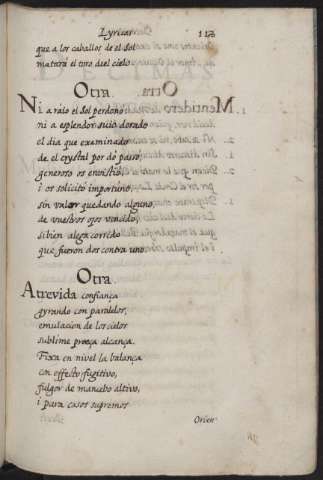 Lyricas
113
que a los caballos de el Sol
matara el tiro d'el cielo
Otra
Ni a raio el Sol perdonó
ni a esplendor suio dorado
el dia que examinado
de el crystal por dó passò
generoso os envistiò,
i os solicitò importuno,
sin valor quedando alguno
de vuestros ojos vencido,
si bien alega corrido
que fueron dos contra uno.
Otra
Atrevida confiança
gyrando con paralelos,
emulacion de los cielos
sublime proeça alcança.
Fixa en nivel la balança
con effecto fugitivo,
fulgor de mancebo altivo,
i para casos supremos
Orien